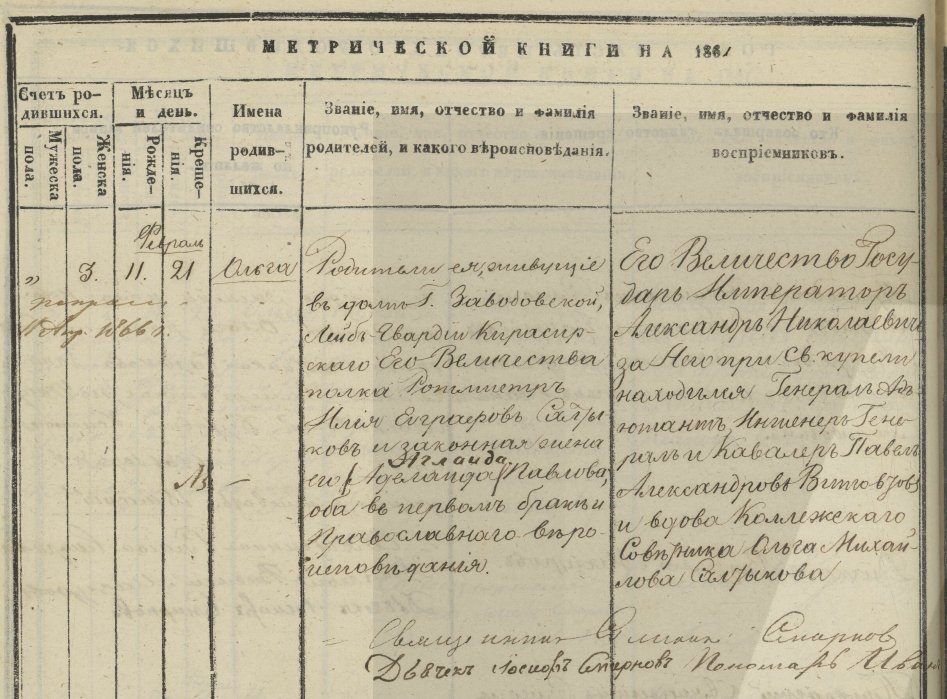 МЕТРИЧЕСКОЙ КНИГИ НА 1861
Счетъ ро-
дившихся.
Мужеска
пола.
Женска
пола.
Мѣсяцъ
и день.
Рожде-
нія.
Креще-
нія.
Имена
родив-
шихся.
Званіе, имя, отчество и фамилія
родителей, и какого вѣроисповѣданія.
Званіе, имя, отчество и фамилія
воспріемниковъ.
Февраль
„ 3. 11. 21 Ольга
1866
Родители ея, живущіе
въ домѣ Г. Заводовской,
Лейбъ-Гвардіи Кирасир-
скаго Его Величества
полка Ротмистръ
Илія Евграфовъ Салты-
ковъ и законная жена
его Аделаида Павлова,
Аглаида
оба въ первомъ бракѣ и
Православнаго вѣро-
исповѣданія.
Его Величество Госу-
дарь Императоръ
Александръ Николаевичъ
за Него при Св. купели
находился Генералъ Адъ-
ютантъ, Инженеръ Гене-
ралъ и Кавалеръ Павелъ
Александровъ Витовтовъ
и вдова Коллежскаго
Совѣтника Ольга Михай-
лова Салтыкова
Священникъ Смирновъ
Дьячекъ Іосифъ Смирновъ Пономарь Иван